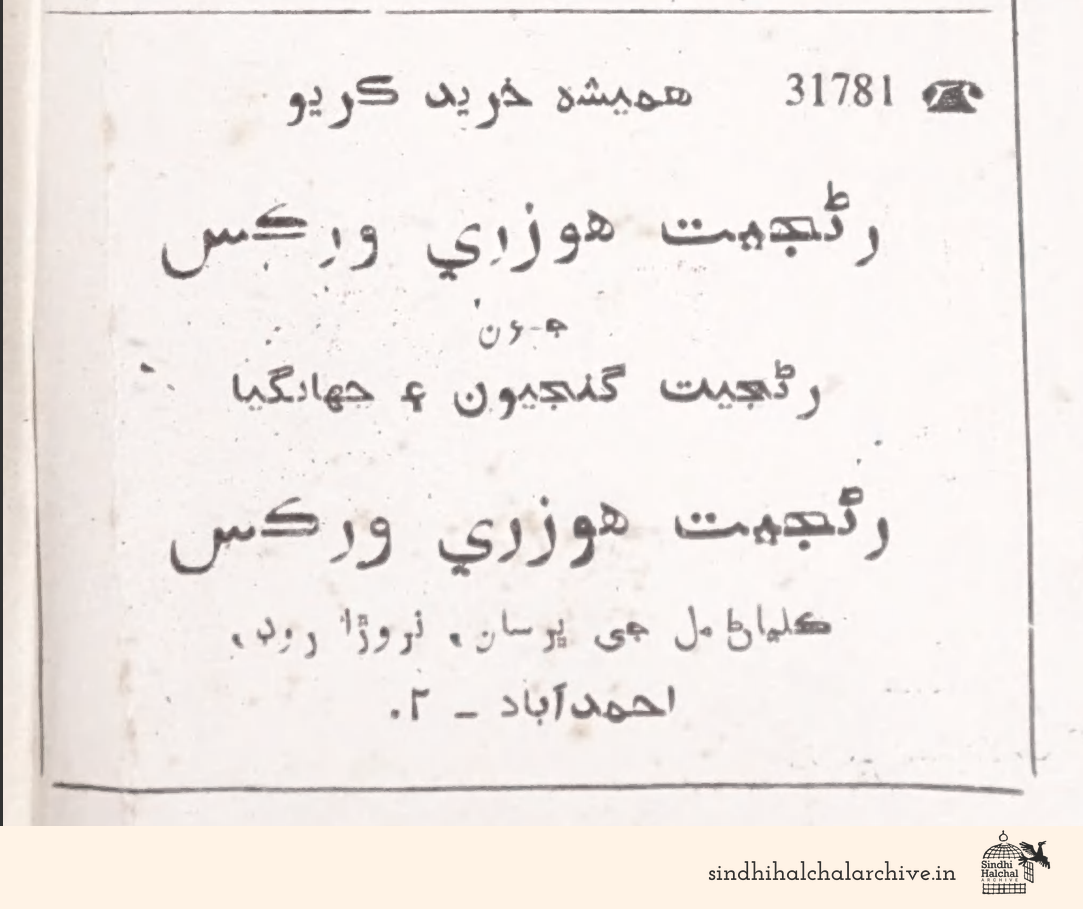 ☎ 31781 هميشه خريد ڪريو
رڻجيت هوزري ورڪس
جون
رڻجيت گنجيون ۽ جهانگيا
رڻجيت هوزري ورڪس
ڪلياڻ مل جي پرسان، نروڙا روڊ،
احمدآباد ـ ٢.
sindhihalchalarchive.in
Sindhi
Halchal
ARCHIVE